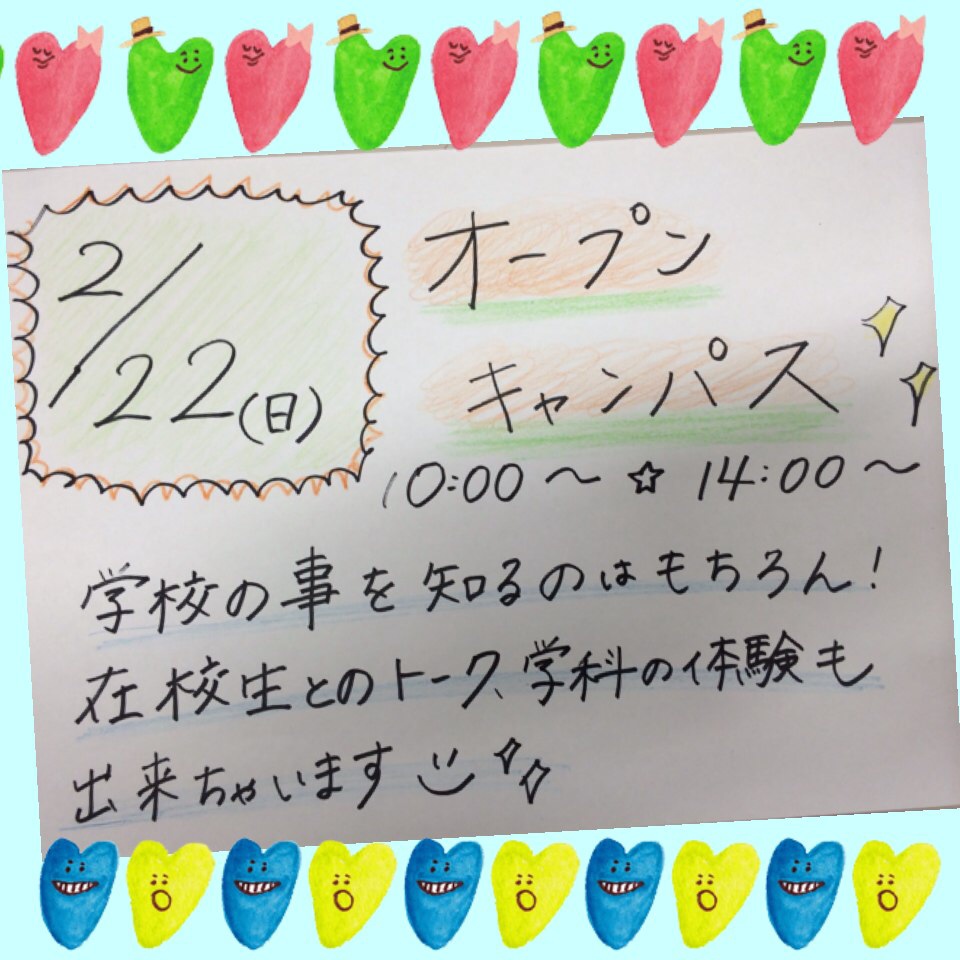 2/22(日)
オープン
キャンパス
10:00〜☆14:00〜
学校の事を知るのはもちろん!
在校生とのトーク、学科の体験も
出来ちゃいます